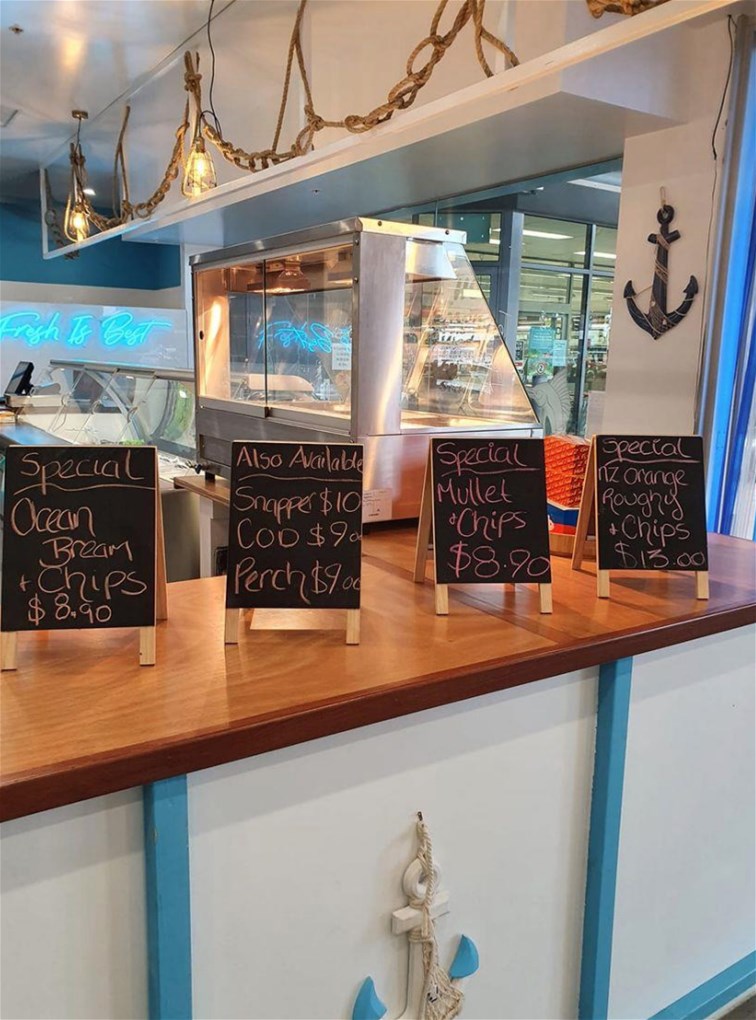 Fresh Is Best
Special
Ocean
Bream
+ Chips
$8.90
Also Available
Snapper $10
Cod $9.
Perch $9.00
Special
Mullet
+ Chips
$8.90
Special
NZ Orange
Roughy
+ Chips
$13.00